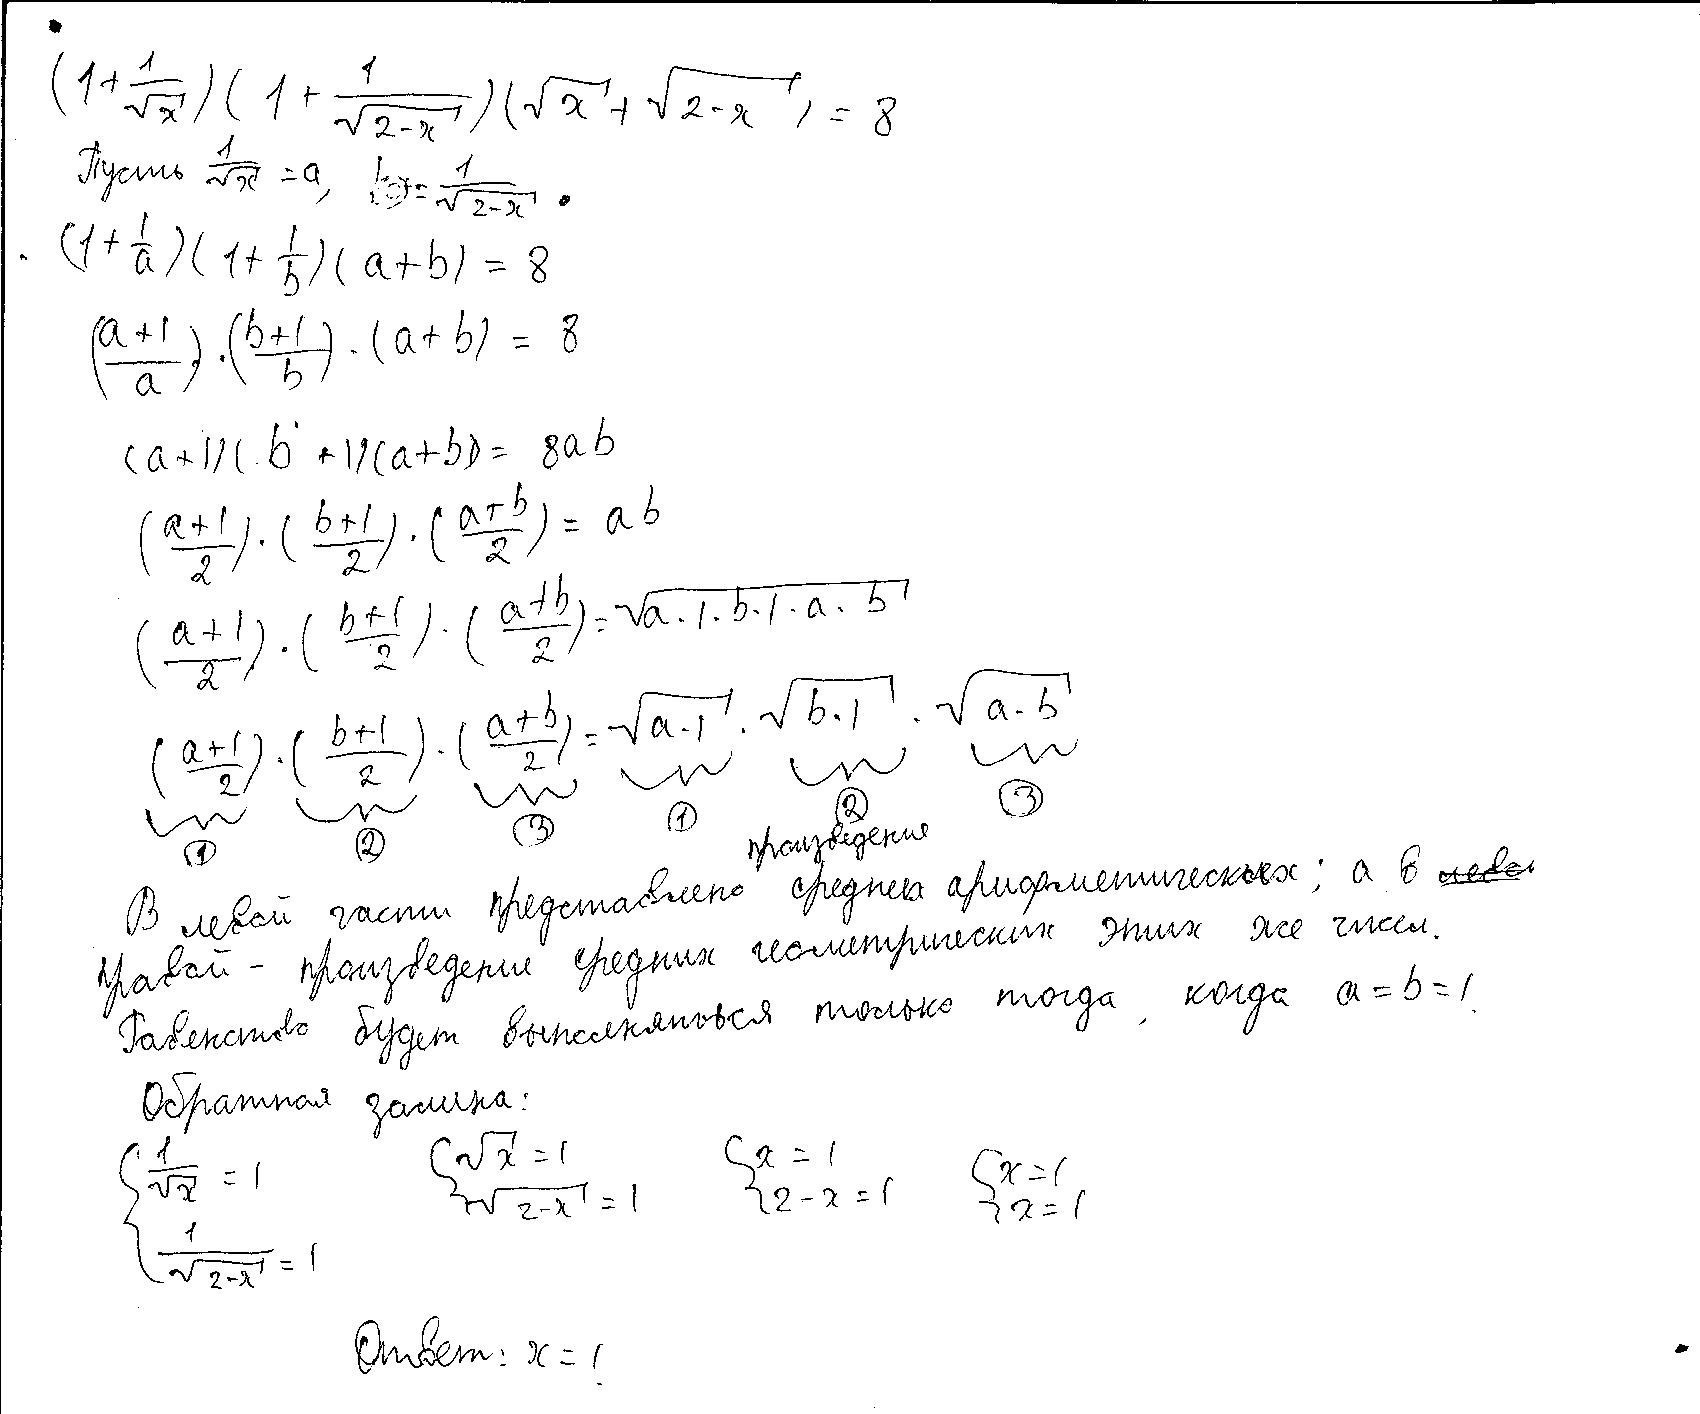 (1+1/√x)(1+1/√(2-x))(√x+√(2-x))=8
Пусть 1/√x=a, b=1/√(2-x).
(1+1/a)(1+1/b)(a+b)=8
((a+1)/a)·((b+1)/b)·(a+b)=8
(a+1)(b+1)(a+b)=8ab
((a+1)/2)·((b+1)/2)·((a+b)/2)=ab
((a+1)/2)·((b+1)/2)·((a+b)/2)=√(a·1·b·1·a·b)
((a+1)/2)·((b+1)/2)·((a+b)/2)=√(a·1)·√(b·1)·√(a·b)
① ② ③ ① ② ③
произведение
В левой части представлено средних арифметических; а в
правой - произведение средних геометрических этих же чисел.
Равенство будет выполняться только тогда, когда a=b=1.
Обратная замена:
{1/√x=1 {√x=1 {x=1 {x=1
{1/√(2-x)=1 {√(2-x)=1 {2-x=1 {x=1
Ответ: x=1.